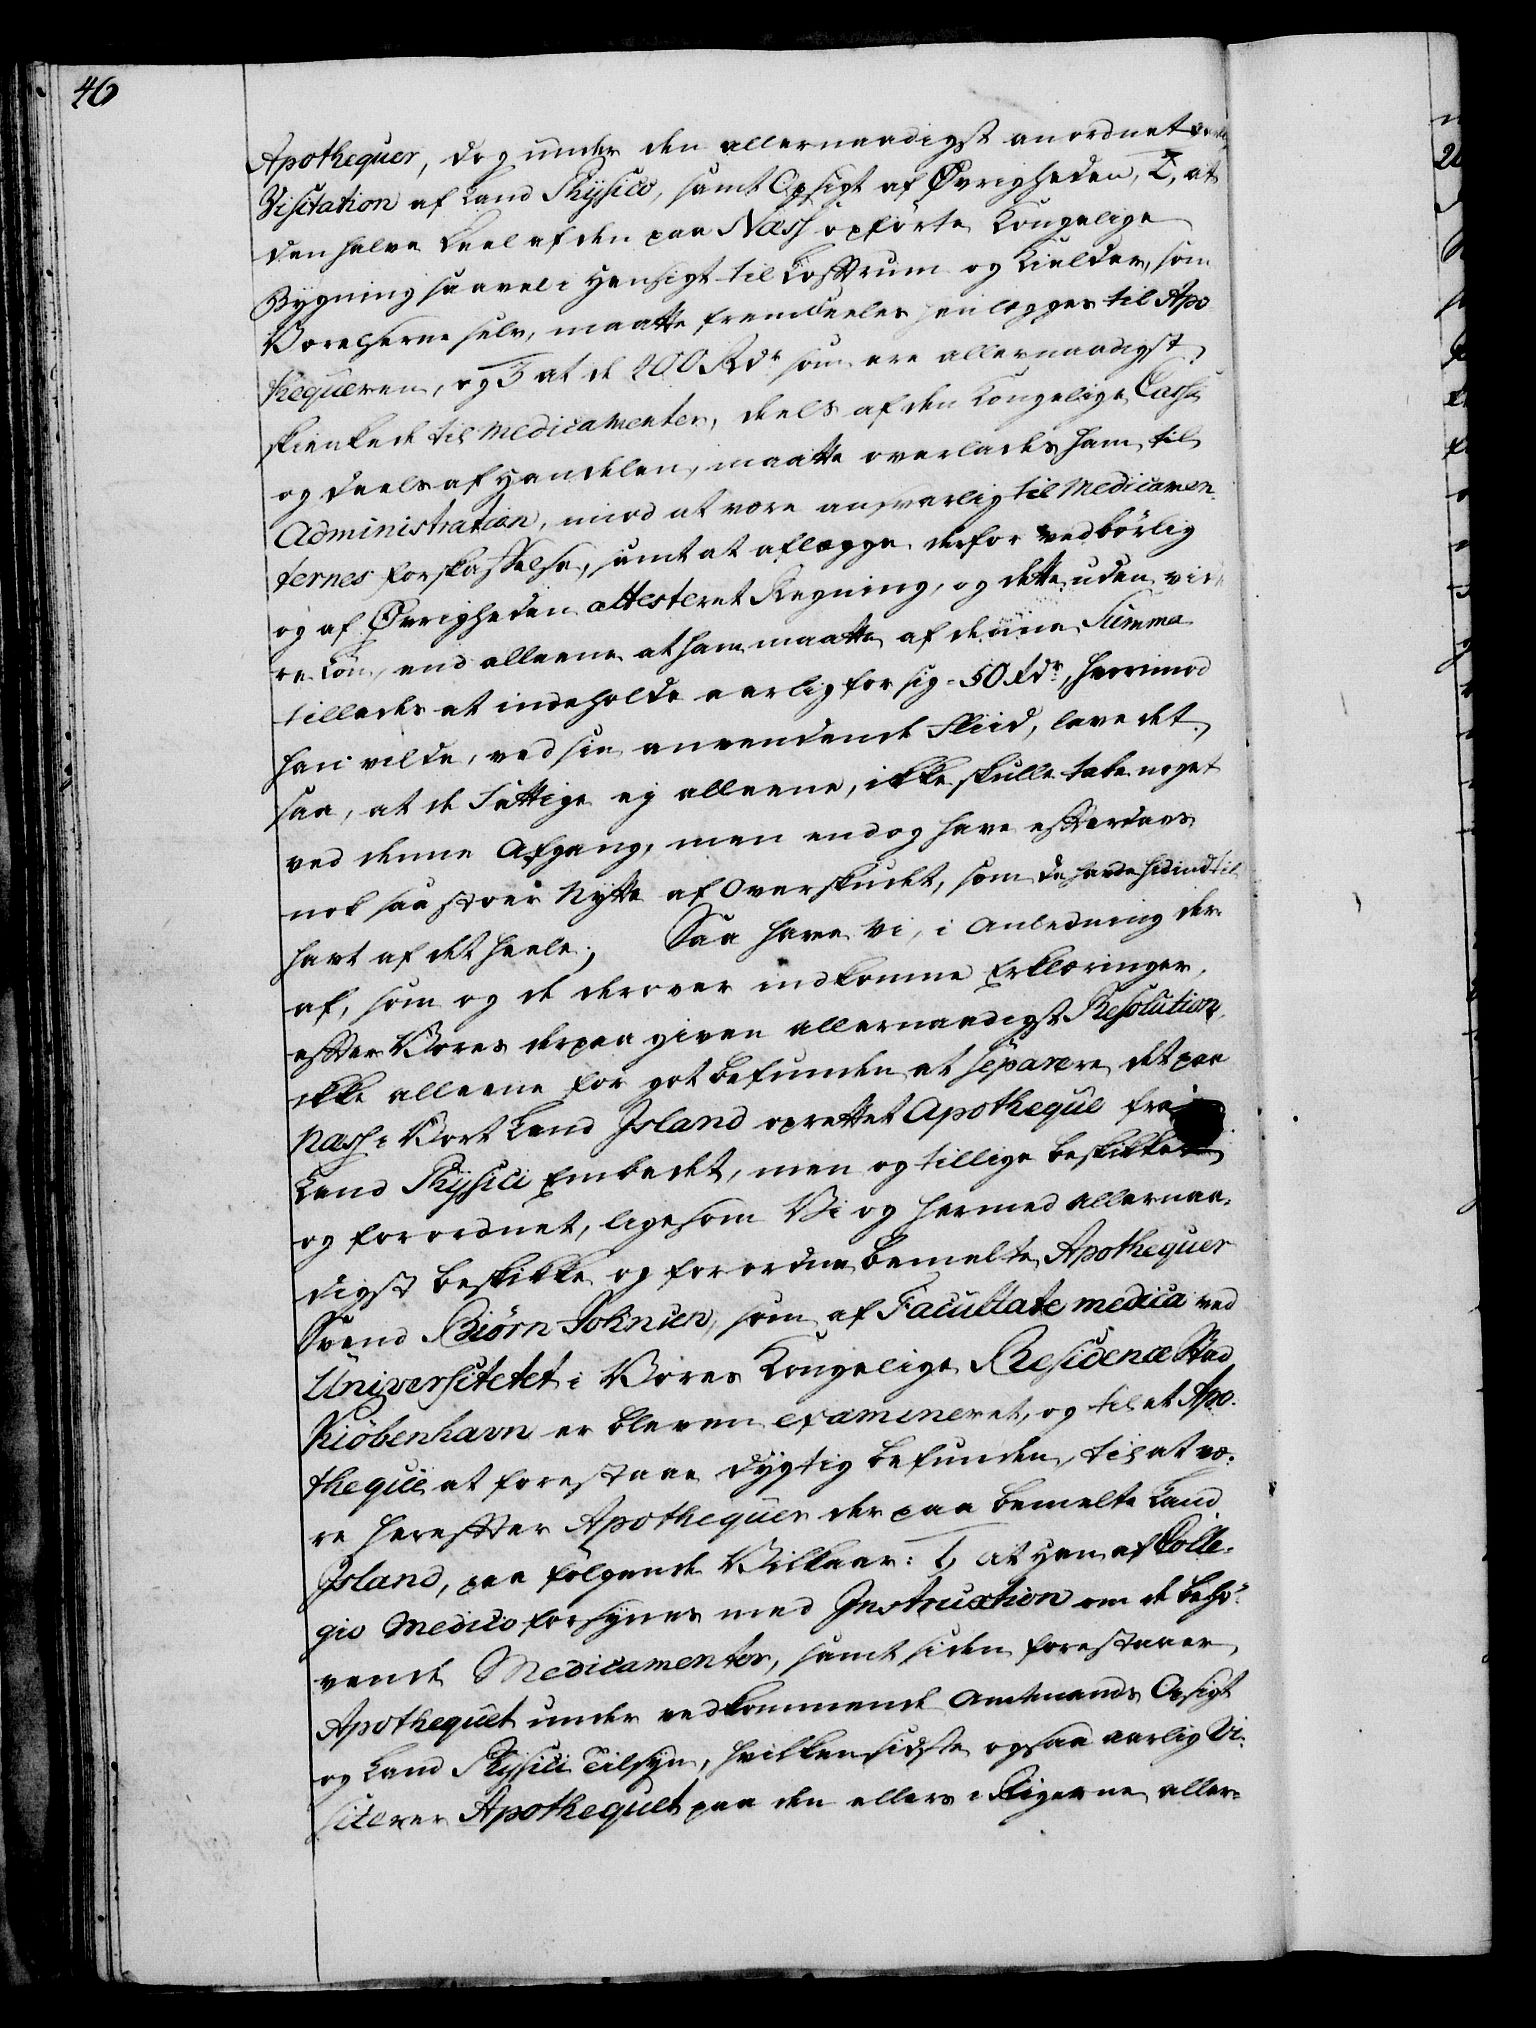 46
Apothequer, dog under den allernaadigst anordnet
Visitation af Land Physico, samt Opsigt af Øvrigheden, 2, at
den halve Deel af den paa Næss opførte Kongelige
Bygning saavel i Hensigt til Lofftrum og Kielder, som
Værelserne selv, maatte fremdeeles henlægges til Apo
thequeren, og 3 at de 400 Rdr som ere allernaadigst
skienkede til Medicamenter, deels af den Kongelige Cassa
og deels af Handelen, maatte overlades ham til
Administration, mod at være ansvarlig til Medicamen
ternes forskaffelse, samt at aflægge derfor vedbørlig
og af Øvrigheden attesteret Regning, og dette uden vide
re Løn, end alleene at ham maatte af denne Summa
tillades at indeholde aarlig for sig 50 Rdr, hvorimod
han vilde, ved sin anvendende Fliid, lave det
saa, at de Fattige ej alleene, ikke skulle tabe noget
ved denne Afgang, men endog have efterdags
nok saa stoer Nytte af Overskudet, som de havde hidindtil
havt af det heele; Saa have Vi, i Anledning der
af, som og de derover indkomne Erklæringer,
efter Vores derpaa given allernaadigst Resolution,
ikke alleene for got befunden at separere det paa
Næss i Vort Land Jsland oprettet Apotheque fra
Land Physici Embedet, men og tillige beskikket
og forordnet, ligesom Vi og hermed allernaa-
digst beskikke og forordne bemelte Apothequer
Svend Biørn Johnsen, som af Facultate medica ved
Universitetet i Vores Kongelige Residence Stad
Kiøbenhavn er bleven examineret, og til et Apo-
theque at forestaae dygtig befunden, til at væ-
re herefter Apothequer der paa bemelte Land
Jsland, paa følgende Vilkaar: 1, at Han af Colle-
gio Medico forsynes med Jnstruction om de behø-
vende Medicamenter, samt siden forestaaer
Apothequet under vedkommende Amtmands Opsigt
og Land Physici Tilsyn, hvilken sidste ogsaa aarlig Vi-
siterer Apothequet paa den ellers i Rigerne aller-